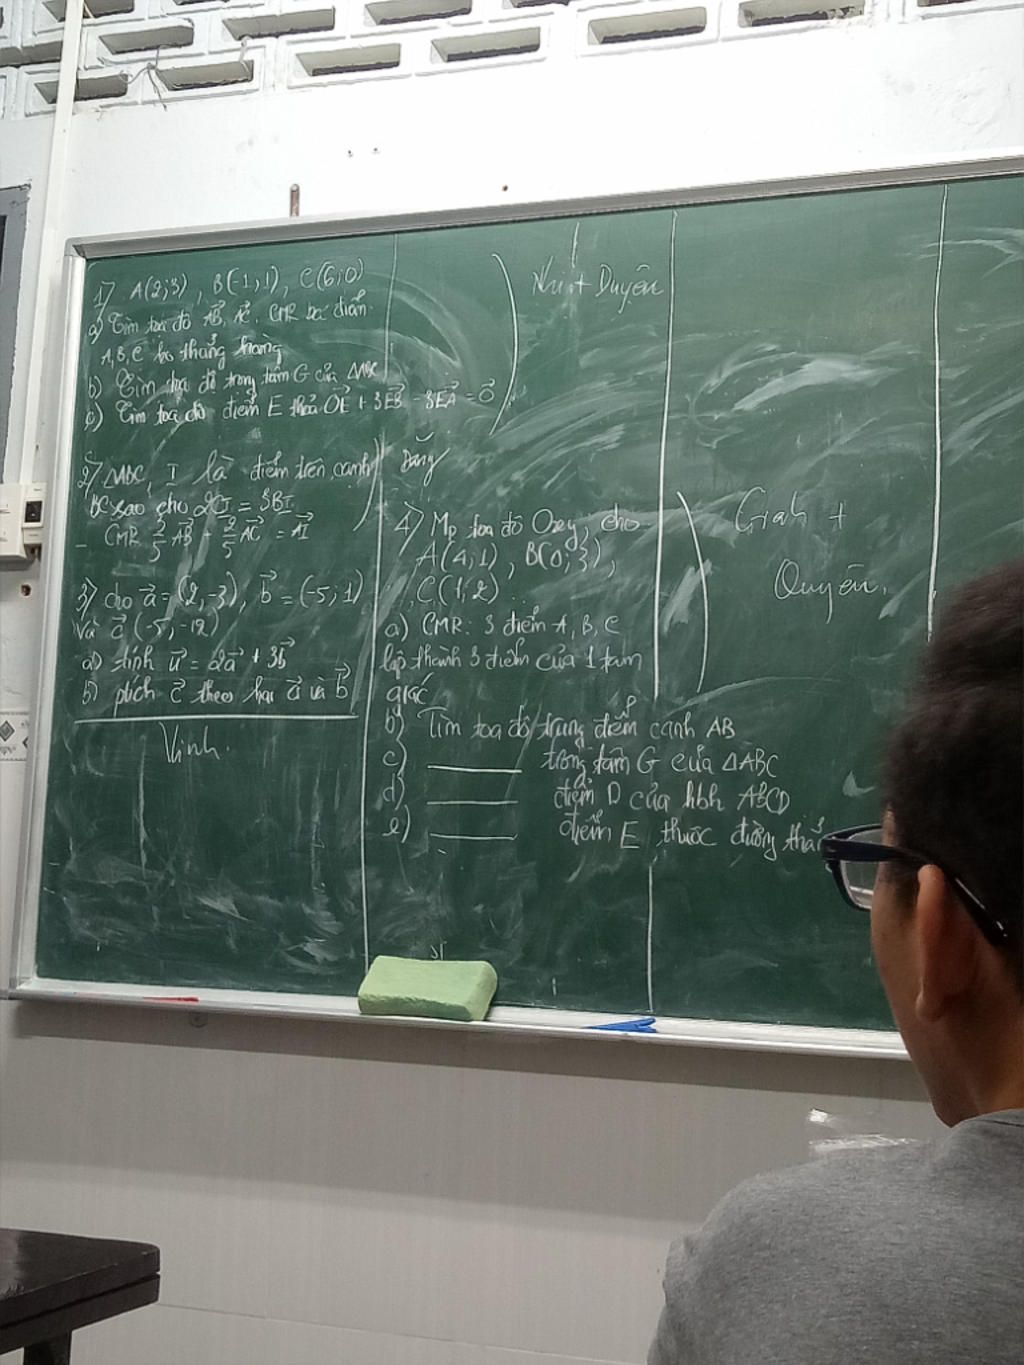 1) A(2;3), B(-1;1), C(6;0)
a) Tìm tọa độ AB, AC. CMR ba điểm
A, B, C ko thẳng hàng
b) Tìm tọa độ trọng tâm G của ΔABC
c) Tìm tọa độ điểm E thỏa OE + 3EB - 3EA = 0
2) ΔABC, I là điểm trên cạnh
BC sao cho 2CI = 3BI
CMR 3/5 AB + 2/5 AC = AI
3) cho a = (2,-3), b = (-5;1)
và c (-5;-12)
a) tính u = 2a + 3b
b) ptích c theo hai a và b
Vinh.
Duyên
Đăng
4) Mp tọa độ Oxy, cho
A(4,1), B(0;3),
C(1;2)
a) CMR: 3 điểm A, B, C
lập thành 3 điểm của 1 tam
giác
b) Tìm tọa độ trung điểm cạnh AB
c) ____ trọng tâm G của ΔABC
d) ____ điểm D của hbh ABCD
e) ____ điểm E thuộc đường
+
Quyên.